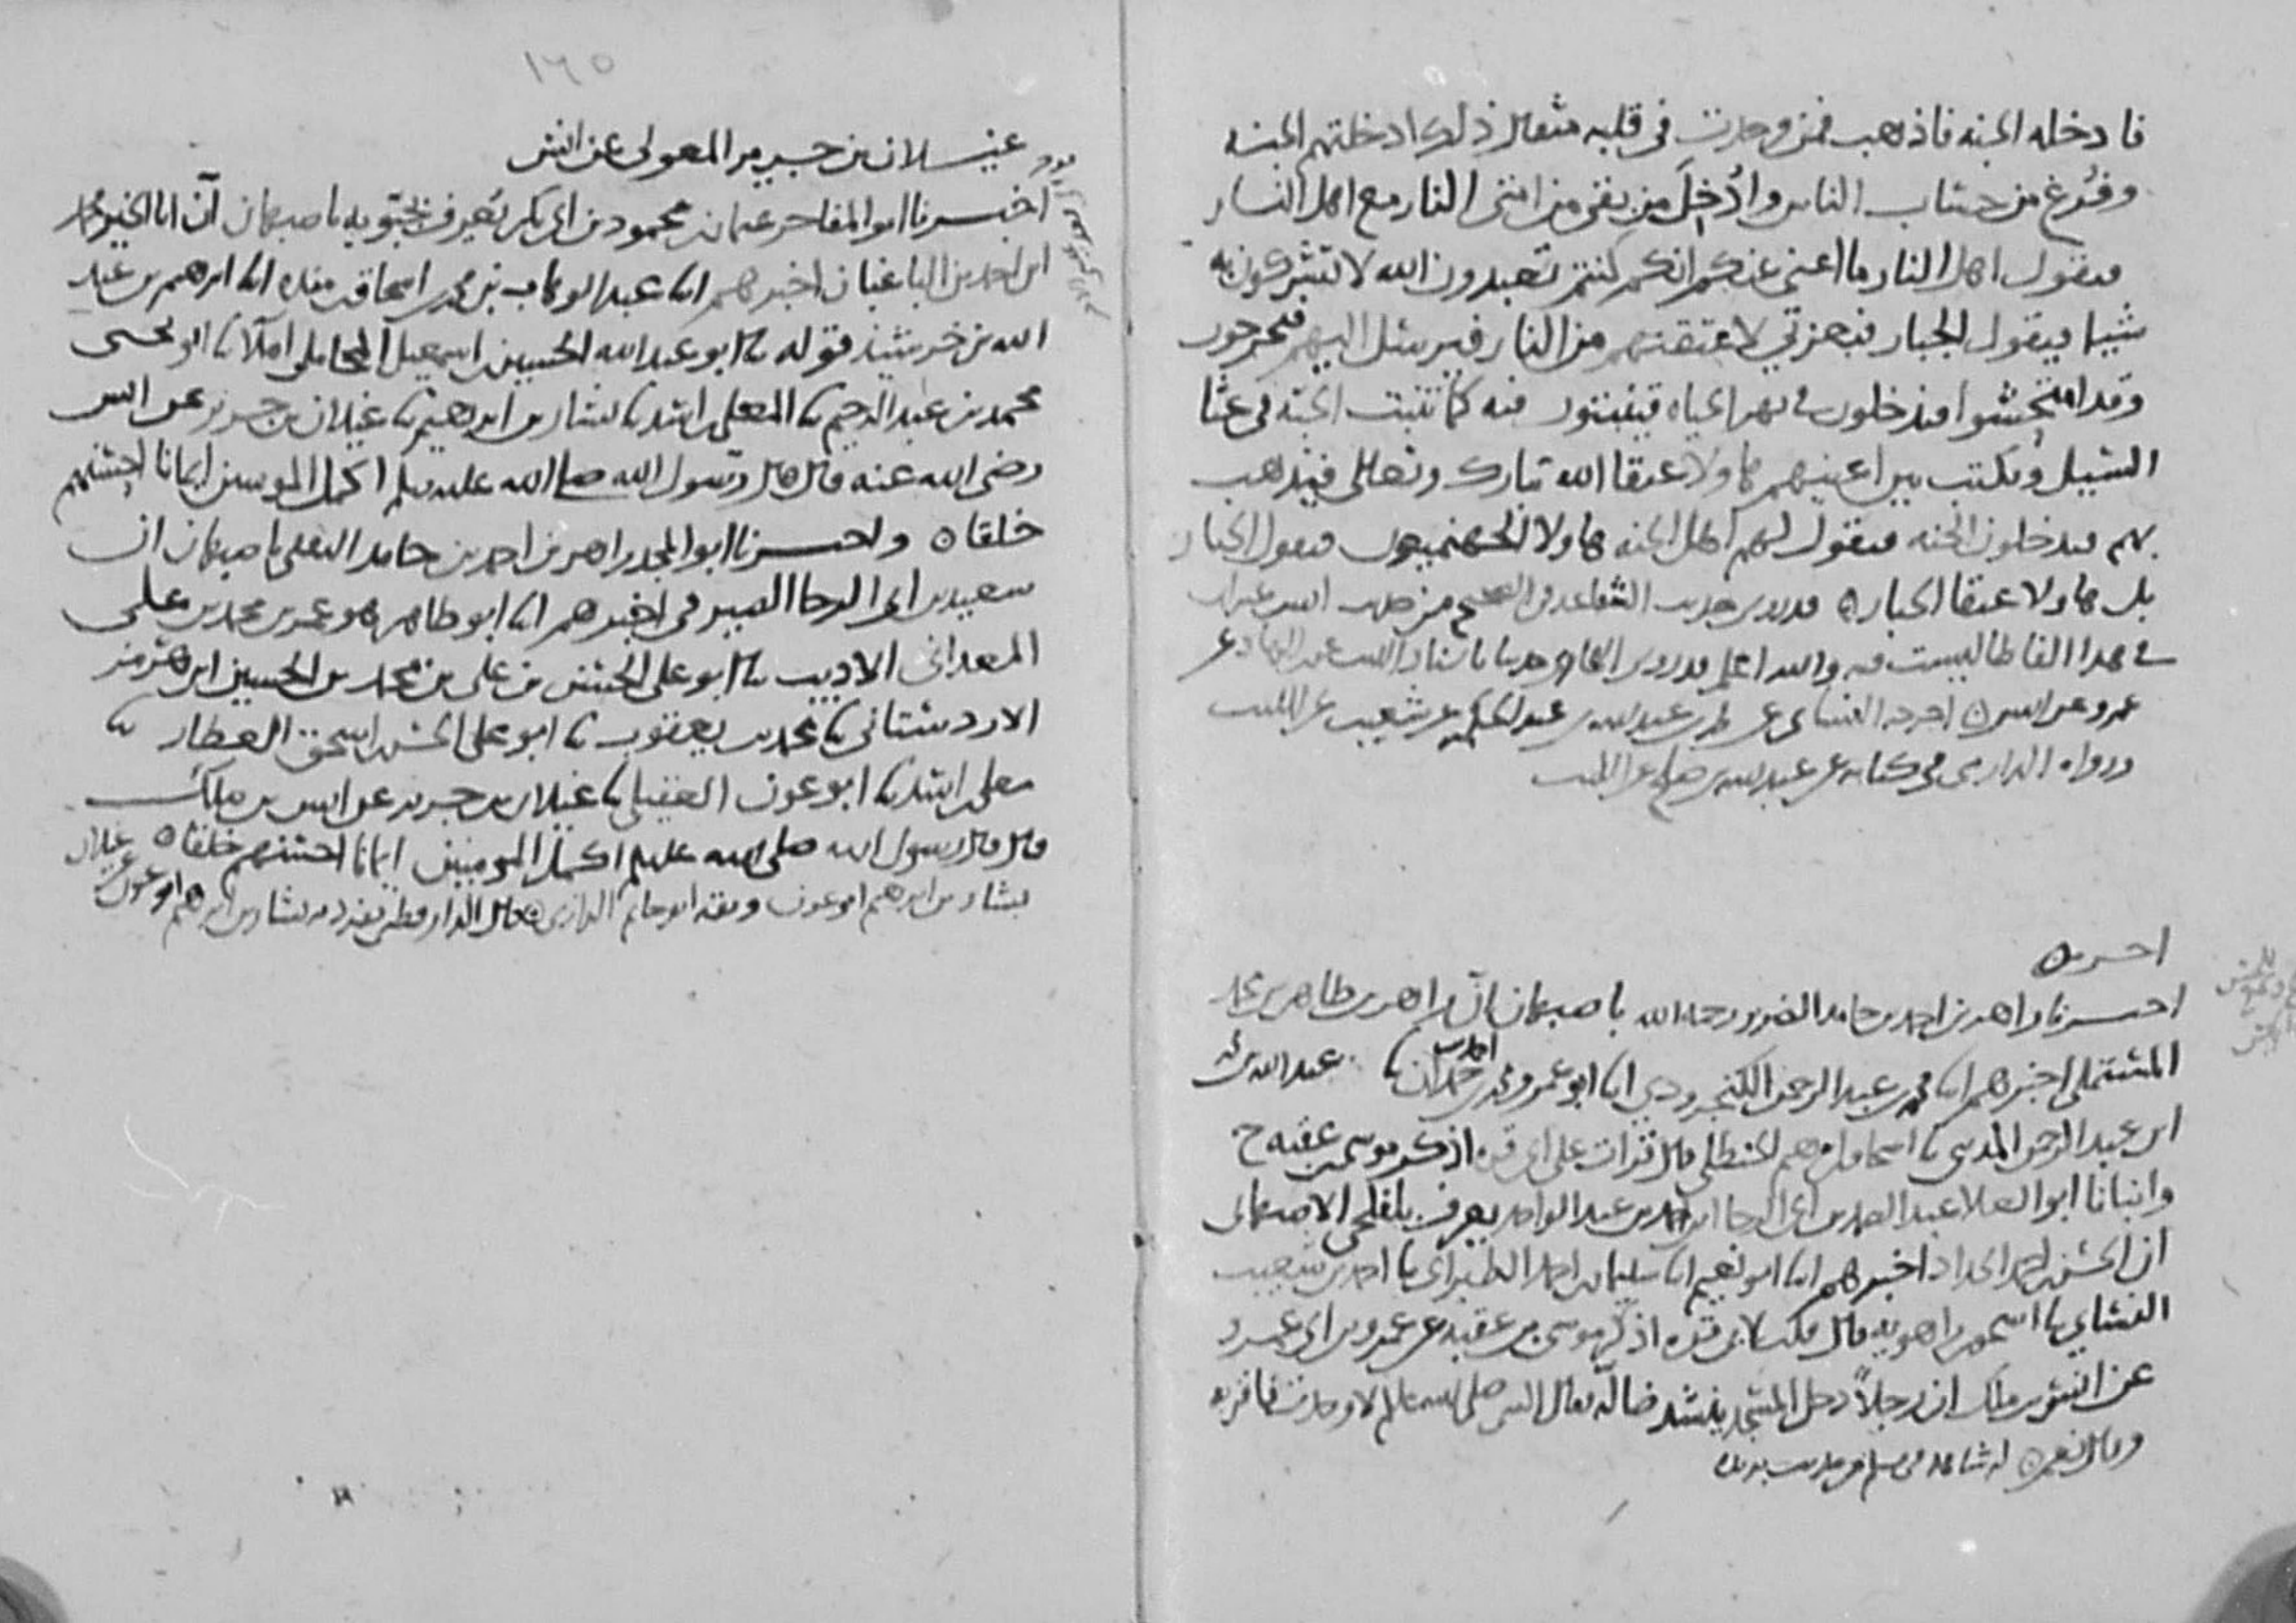 فادخله الجنه فاذهب فمن وجدت في قلبه مثقال ذلك ادخلتهم الجنه
وفرغ من حساب الناس وادخل من بقي من امتي النار مع اهل النار
فيقول اهل النار ما اغنى عنكم انكم كنتم تعبدون الله لا تشركون به
شيا فيقول الجبار فبعزتي لاعتقنهم من النار فيرسل اليهم فيخرجون
وقد امتحشوا فيدخلون في نهر الحياه فينبتون فيه كما تنبت الحبه في غثا
السيل ويكتب بين اعينهم هاولا عتقا الله تبارك وتعالى فيذهب
بهم فيدخلون الجنه فيقول لهم اهل الجنه هاولا الجهنميون فيقول الجبار
بل هاولا عتقا الجبار ه قد روي حديث الشفاعه في الصحيح من حديث انس
في هذا الفاظا ليست فيه والله اعلم قد روى باسناد الليث عن ابن الهاد عن
عمرو عن انس ه اخرجه النسائي عن عبد الله بن عبد الحكم عن شعيب عن الليث
ورواه الدارمي في كتابه عن عبد الله بن صالح عن الليث
اخـر ه
اخبرنا زاهر بن احمد بن حامد الضرير رحمه الله باصبهان ان زاهر بن طاهر بن محمد
المستملي اخبرهم ابنا محمد بن عبد الرحمن الكنجرودي ابنا ابو عمرو محمد بن احمد بن حمدان ثنا عبد الله بن محمد
ابن عبد الرحمن المديني ثنا اسحاق بن ابرهيم الحنظلي قال قرات على ابي قره اذكر موسى بن عقبه ح
وانبانا ابو العلا عبد الصمد بن ابي الرجا بن احمد بن عبد الواحد يعرف الاصبهاني
ان الحسن بن احمد الحداد اخبرهم ابنا ابو نعيم ابنا سليمان بن احمد الطبراني ثنا احمد بن شعيب
النسائي ثنا اسحق بن راهويه قال قلت لابي قره اذكر موسى بن عقبه عن عمرو بن ابي عمرو
عن انس بن ملك ان رجلا دخل المسجد ينشد ضاله فقال النبي صلى الله عليه وسلم لا وجدت فاقر به
وقال نعم ه له شاهد في مسلم من حديث بريده
١٦٥
غيـلان بن جـرير المعولي عن انس
اخـبرنا ابو المفاخر عثمان بن محمود بن ابي بكر يعرف باصبهان ان ابا الخير محمد
ابن احمد بن الباغبان اخبرهم ابنا عبد الوهاب بن محمد بن اسحاق بن منده ابنا ابرهيم بن عبد
الله بن خرشيذ قوله ثنا ابو عبد الله الحسين بن اسمعيل المحاملي املا ثنا ابو يحيى
محمد بن عبد الرحيم ثنا المعلى بن اسد ثنا بشار بن ابرهيم ثنا غيلان بن جرير عن انس
رضي الله عنه قال قال رسول الله صلى الله عليه وسلم اكمل المومنين ايمانا احسنهم
خلقا ه واخـبرنا ابو المجد زاهر بن احمد بن حامد الثقفي باصبهان ان
سعيد بن ابي الرجا الصيرفي اخبرهم ابنا ابو طاهر هو عمر بن محمد بن علي
المعداني الاديب ثنا ابو علي الحسن بن علي بن محمد بن الحسين ابن هرمز
الاردستاني ثنا محمد بن يعقوب ثنا ابو علي الحسن بن اسحق العطار ثنا
معلى بن اسد ثنا ابو عون العقيلي ثنا غيلان بن جرير عن انس بن ملك
قال قال رسول الله صلى الله عليه وسلم اكمل المومنين ايمانا احسنهم خلقا ه
بشار بن ابرهيم ابو عون وثقه ابو حاتم الرازي ه قال الدارقطني تفرد به بشار بن ابرهيم ابو عون عن غيلان